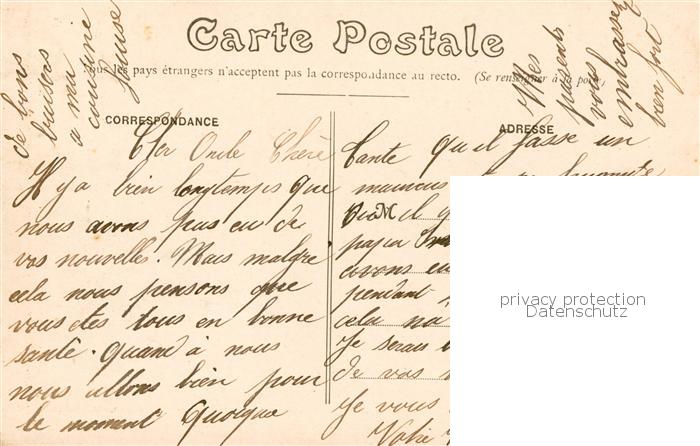 Carte Postale
Tous les pays étrangers n'acceptent pas la correspondance au recto. (Se renseigner à la poste)
CORRESPONDANCE
ADRESSE
Cher Oncle Chère
Il y a bien longtemps que
nous avons pas eu de
vos nouvelles. Mais malgre
cela nous pensons que
vous etes tous en bonne
santé. Quand à nous
nous allons bien pour
le moment Quoique
Tante qu il fasse un
mauvais
il
papa
avons eu
pendant
cela na
Je serais
de vos
Je vous
Votre
Mes
parents
vous
embrasse
bien fort
de bons
baisers
a ma
cousine
privacy protection
Datenschutz